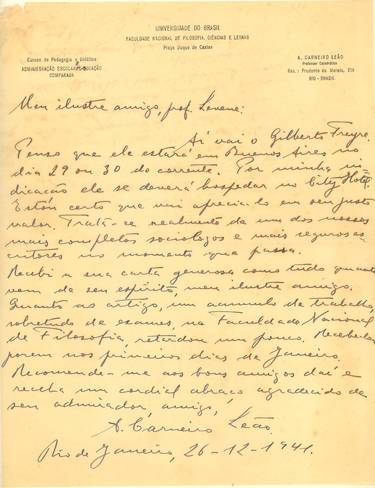 UNIVERSIDADE DO BRASIL
FACULDADE NACIONAL DE FILOSOFIA, CIÊNCIAS E LETRAS
Praça Duque de Caxias
Cursos de Pedagogia e Didática
ADMINISTRAÇÃO ESCOLAR E EDUCAÇÃO
COMPARADA
A. CARNEIRO LEÃO
Professor Catedrático
Res.: Prudente de Morais,
RIO - BRASIL
Meu ilustre amigo, prof. Levene:
Aí vai o Gilberto Freyre.
Penso que ele estará em Buenos Aires no
dia 29 ou 30 do corrente. Por minha in-
dicação ele se deverá hospedar no City Hotel.
Estou certo que vai aprecial-o em seu justo
valor. Trata-se realmente de um dos nossos
mais completos sociologos e mais seguros es-
critores no momento que passa.
Recebi a sua carta generosa como tudo quanto
vem de seu espirito, meu ilustre amigo.
Quanto ao artigo, um acumulo de trabalho,
sobretudo de exames, na Faculdade Nacional
de Filosofia, retardou um pouco. Recebel-o-á
porem nos primeiros dias de Janeiro.
Recomende-me aos bons amigos daí e
receba um cordial abraço agradecido de
seu admirador, amigo,
A. Carneiro Leão.
Rio de Janeiro, 26-12-1941.